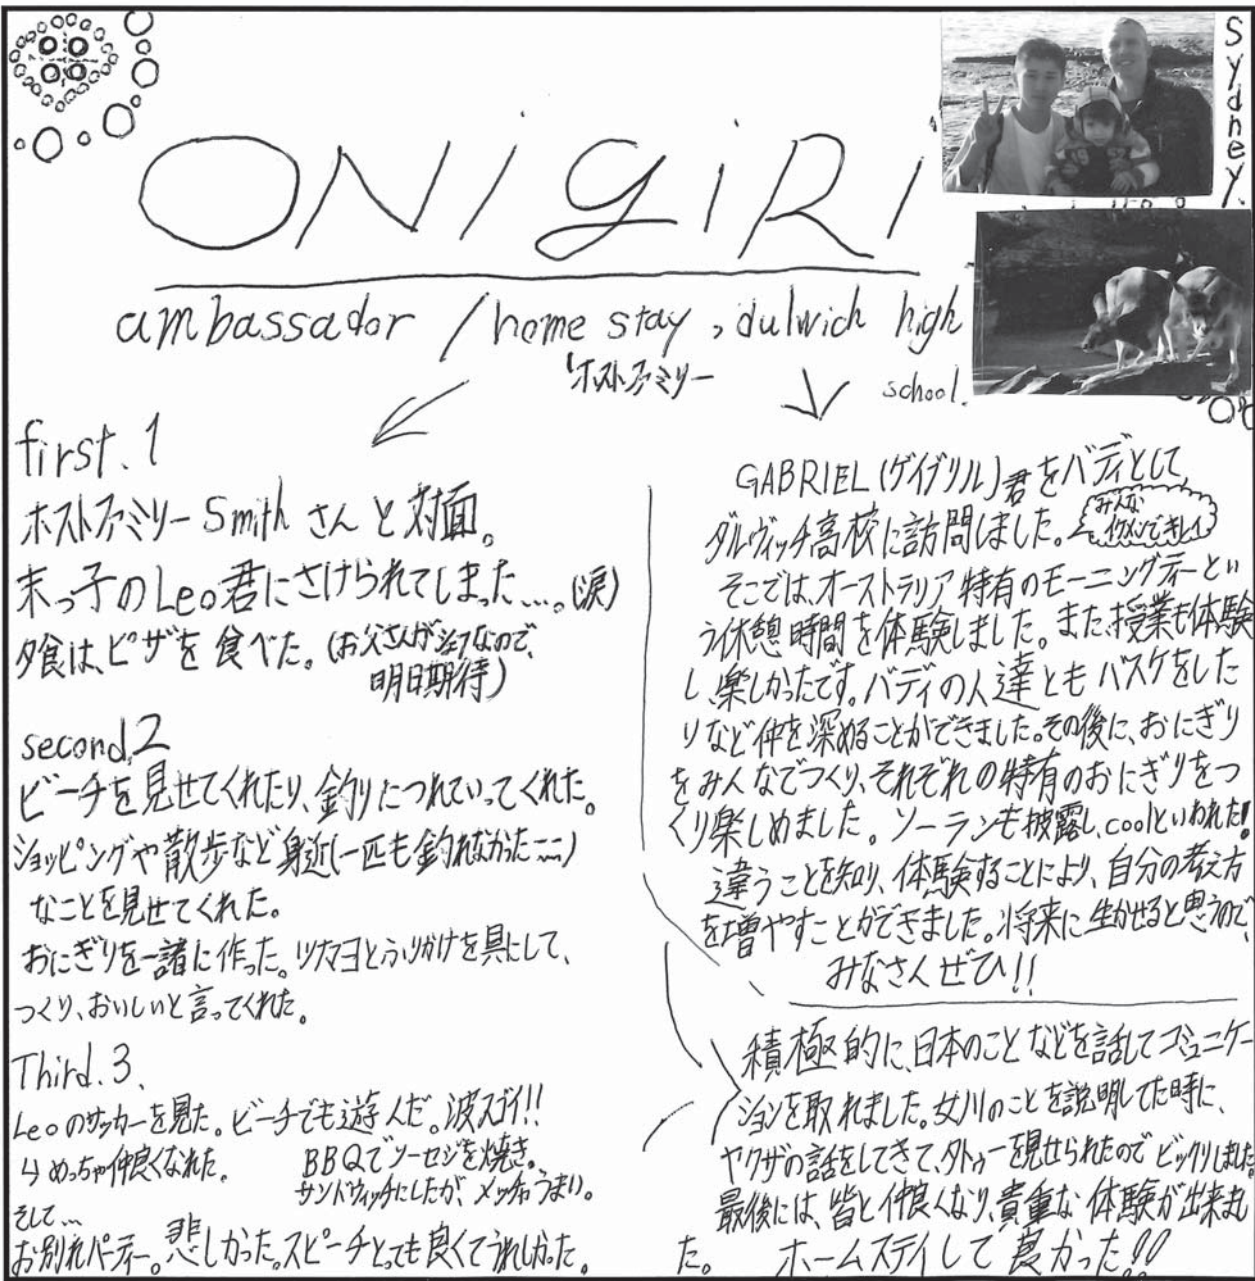 Sydney.
ONiGiRi
ambassador / home stay , dulwich high
school.
ホストファミリー
first. 1
ホストファミリー Smith さんと対面。
末っ子のLeo君にさけられてしまった…。(涙)
夕食は、ピザを食べた。(お父さんがシェフなので、
明日期待)
second 2
ビーチを見せてくれたり、釣りにつれていってくれた。
ショッピングや散歩など身近(一匹も釣れなかった
なことを見せてくれた。
おにぎりを一諸に作った。ツナマヨとふりかけを具にして、
つくり、おいしいと言ってくれた。
Third. 3.
Leoのサッカーを見た。ビーチでも遊んだ。波スゴイ!!
↳めっちゃ仲良くなれた。
BBQでソーセジを焼き。
サンドウィッチにしたが、メッチャうまい。
そして…
お別れパーティー。悲しかった。スピーチとっても良くてうれしかった。
GABRIEL (ゲイブリル)君をバディとして、
ダルヴィッチ高校に訪問しました。
みんな
イケメンでキレイ
そこでは、オーストラリア特有のモーニングティーとい
う休憩時間を体験しました。また、授業も体験
し、楽しかったです。バディの人達ともバスケをした
りなど仲を深めることができました。その後に、おにぎり
をみんなでつくり、それぞれの特有のおにぎりをつ
くり楽しめました。ソーランも披露し、coolといわれた!!
違うことを知り、体験することにより、自分の考え方
を増やすことができました。将来に生かせると思うので、
みなさんぜひ!!
積極的に、日本のことなどを話してコミュニケー
ションを取れました。女川のことを説明してた時に、
ヤクザの話をしてきて、タトゥーを見せられたのでビックリしました。
最後には、皆と仲良くなり、貴重な体験が出来まし
た。 ホームステイして良かった!!